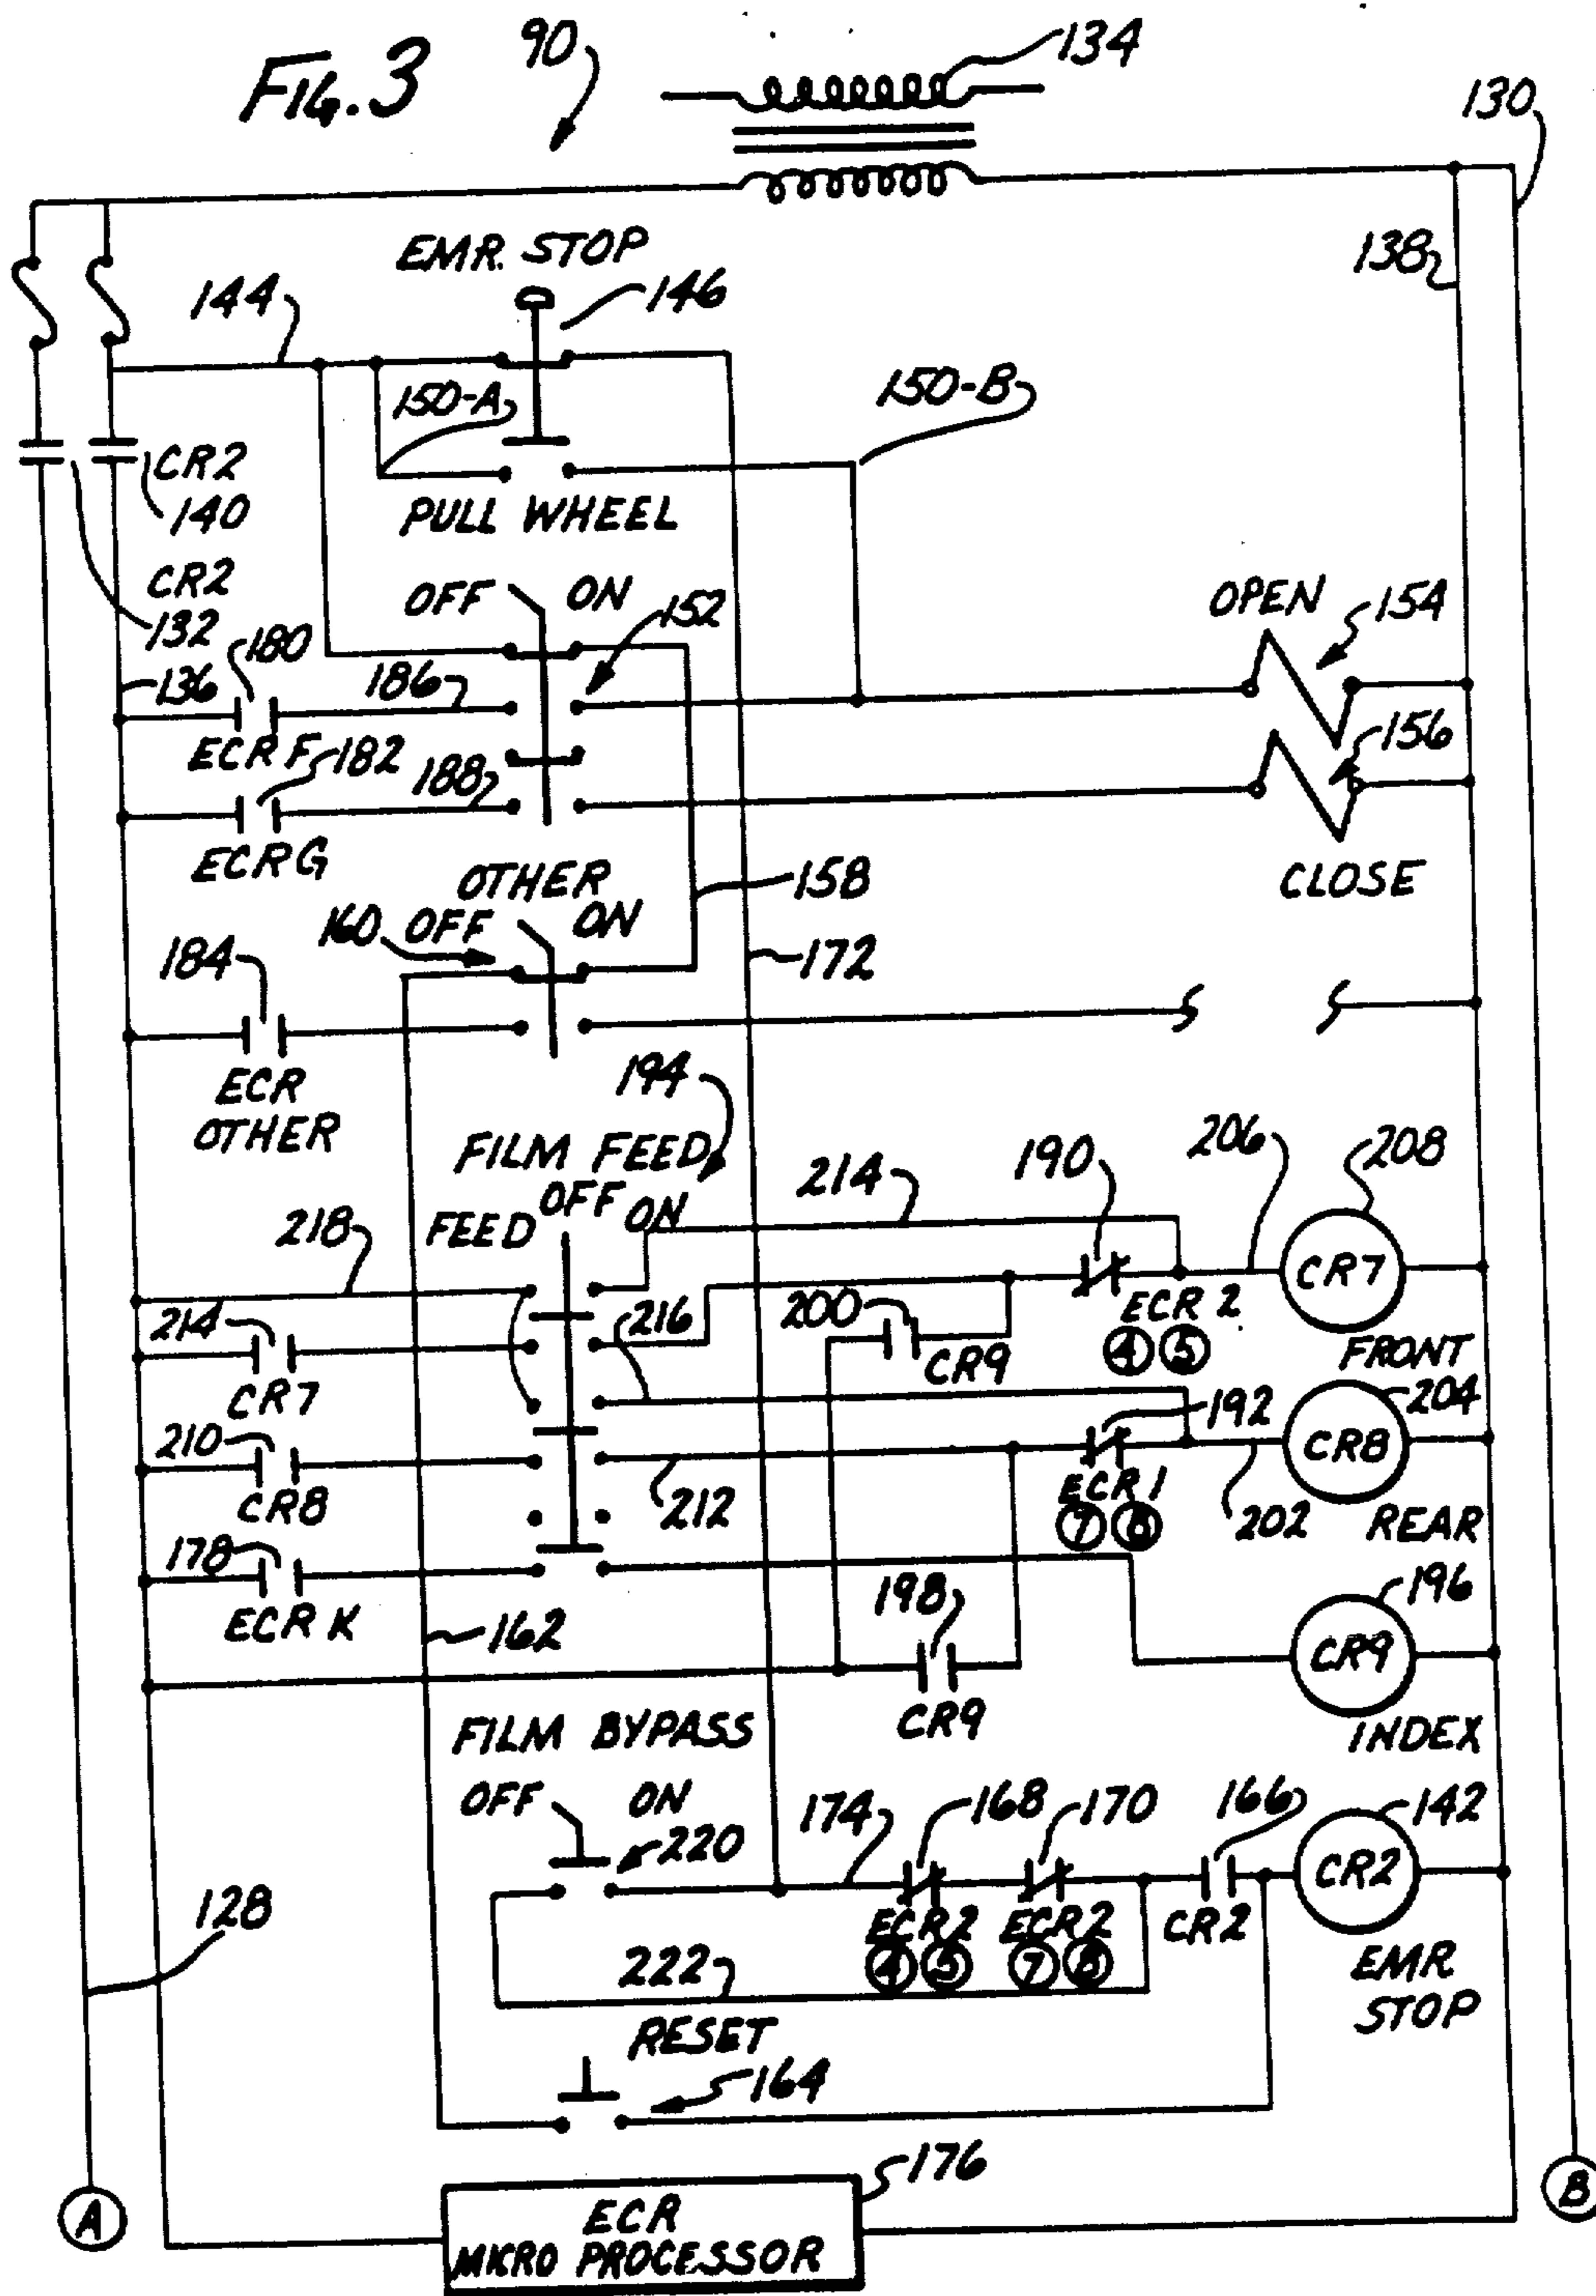 FIG. 3
90
134
130
138
EMR. STOP
146
144
150-A
150-B
CR2
140
PULL WHEEL
CR2
132
OFF ON
152
OPEN
154
136
180
186
ECR F
182
188
156
ECR G
CLOSE
OTHER
158
160 OFF ON
172
184
ECR
OTHER
194
FILM FEED
FEED OFF ON
218
214
190
206
208
CR7
214
216
200
ECR 2
4 5
FRONT
CR7
CR9
210
192
204
CR8
CR8
212
ECR 1
7 8
202
REAR
178
ECR K
162
198
196
CR9
CR9
INDEX
FILM BYPASS
OFF ON
220
174
168
170
166
142
CR2
128
ECR2
4 5
ECR2
7 8
CR2
222
EMR
STOP
RESET
164
176
A
B
ECR
MICRO PROCESSOR